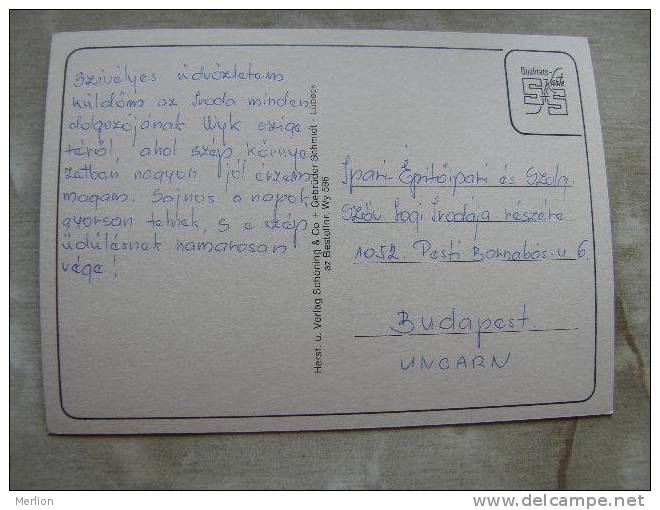 Szívélyes üdvözletem
küldöm az Iroda minden
dolgozójának Wyk szige
téről, ahol szép környe
zetban nagyon jól érzem
magam. Sajnos a napok
gyorsan telnek, s a szép
üdülésnek hamarosan
vége!
Herst. u. Verlag Schöning & Co + Gebrüder Schmidt - Lübeck
az Bestellnr. Wy 596
Qualitäts-
Karte
Ipari- Építőipari és Szolg
Szöv. Jogi Irodája részére
1052. Pesti Barnabás-u 6.
Budapest.
UNGARN
Merlion
www.delcampe.net